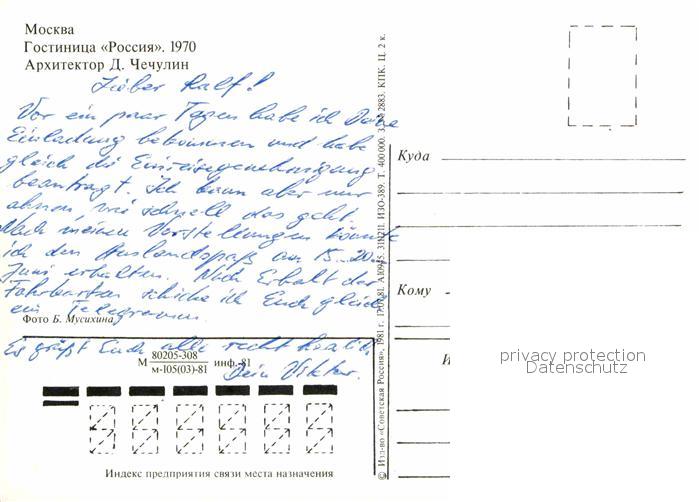 Москва
Гостиница «Россия». 1970
Архитектор Д. Чечулин
Lieber Ralf!
Vor ein paar Tagen habe ich Deine
Einladung bekommen und habe
gleich die Einreisegenehmigung
beantragt. Ich kann aber nur
ahnen, wie schnell das geht.
Nach meinen Vorstellungen könnte
ich den Auslandspaß am 15.-20.
Juni erhalten. Nach Erhalt der
Fahrkarten schicke ich Euch gleich
ein Telegramm.
Фото Б. Мусихина
Es grüßt Euch alle recht herzlich
Dein Viktor.
М 80205-308 инф.-81
м-105(03)-81
Индекс предприятия связи места назначения
© Изд-во «Советская Россия», 1981 г. ИЗО-389. Т. 400 000. 2883. КПК. Ц. 2 к.
Куда
Кому
И
privacy protection
Datenschutz